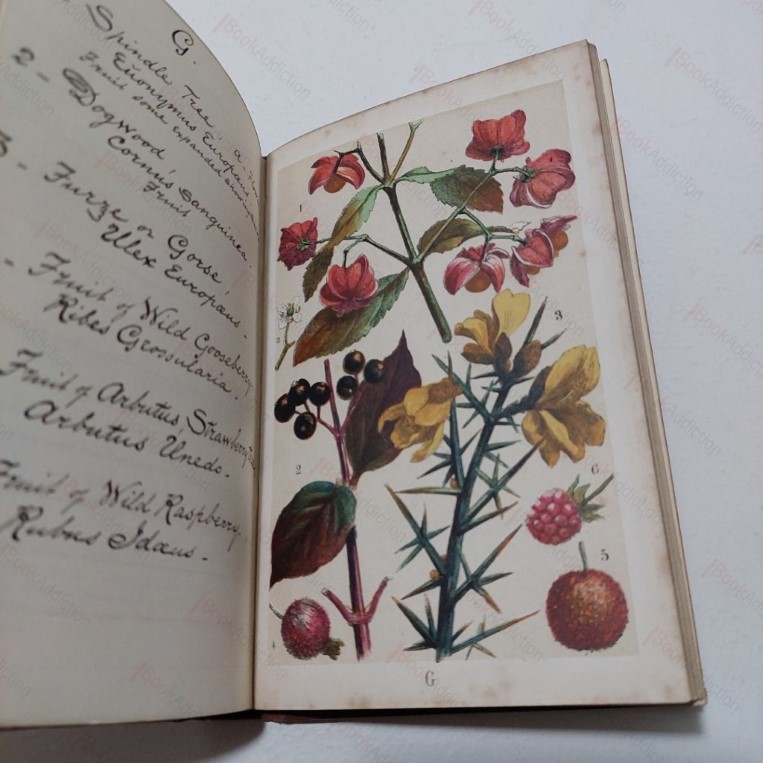 G.
Spindle Tree a.
Euonymus Europæus
Fruit some expanded and
Fruit
2 - Dogwood
Cornus Sanguinea.
3 - Furze or Gorse
Ulex Europæus.
- Fruit of Wild Gooseberry
Ribes Grossularia.
Fruit of Arbutus, Strawberry
Arbutus Unedo.
Fruit of Wild Raspberry.
Rubus Idæus.
1
2
3
2
6
5
4
G
BookAddiction